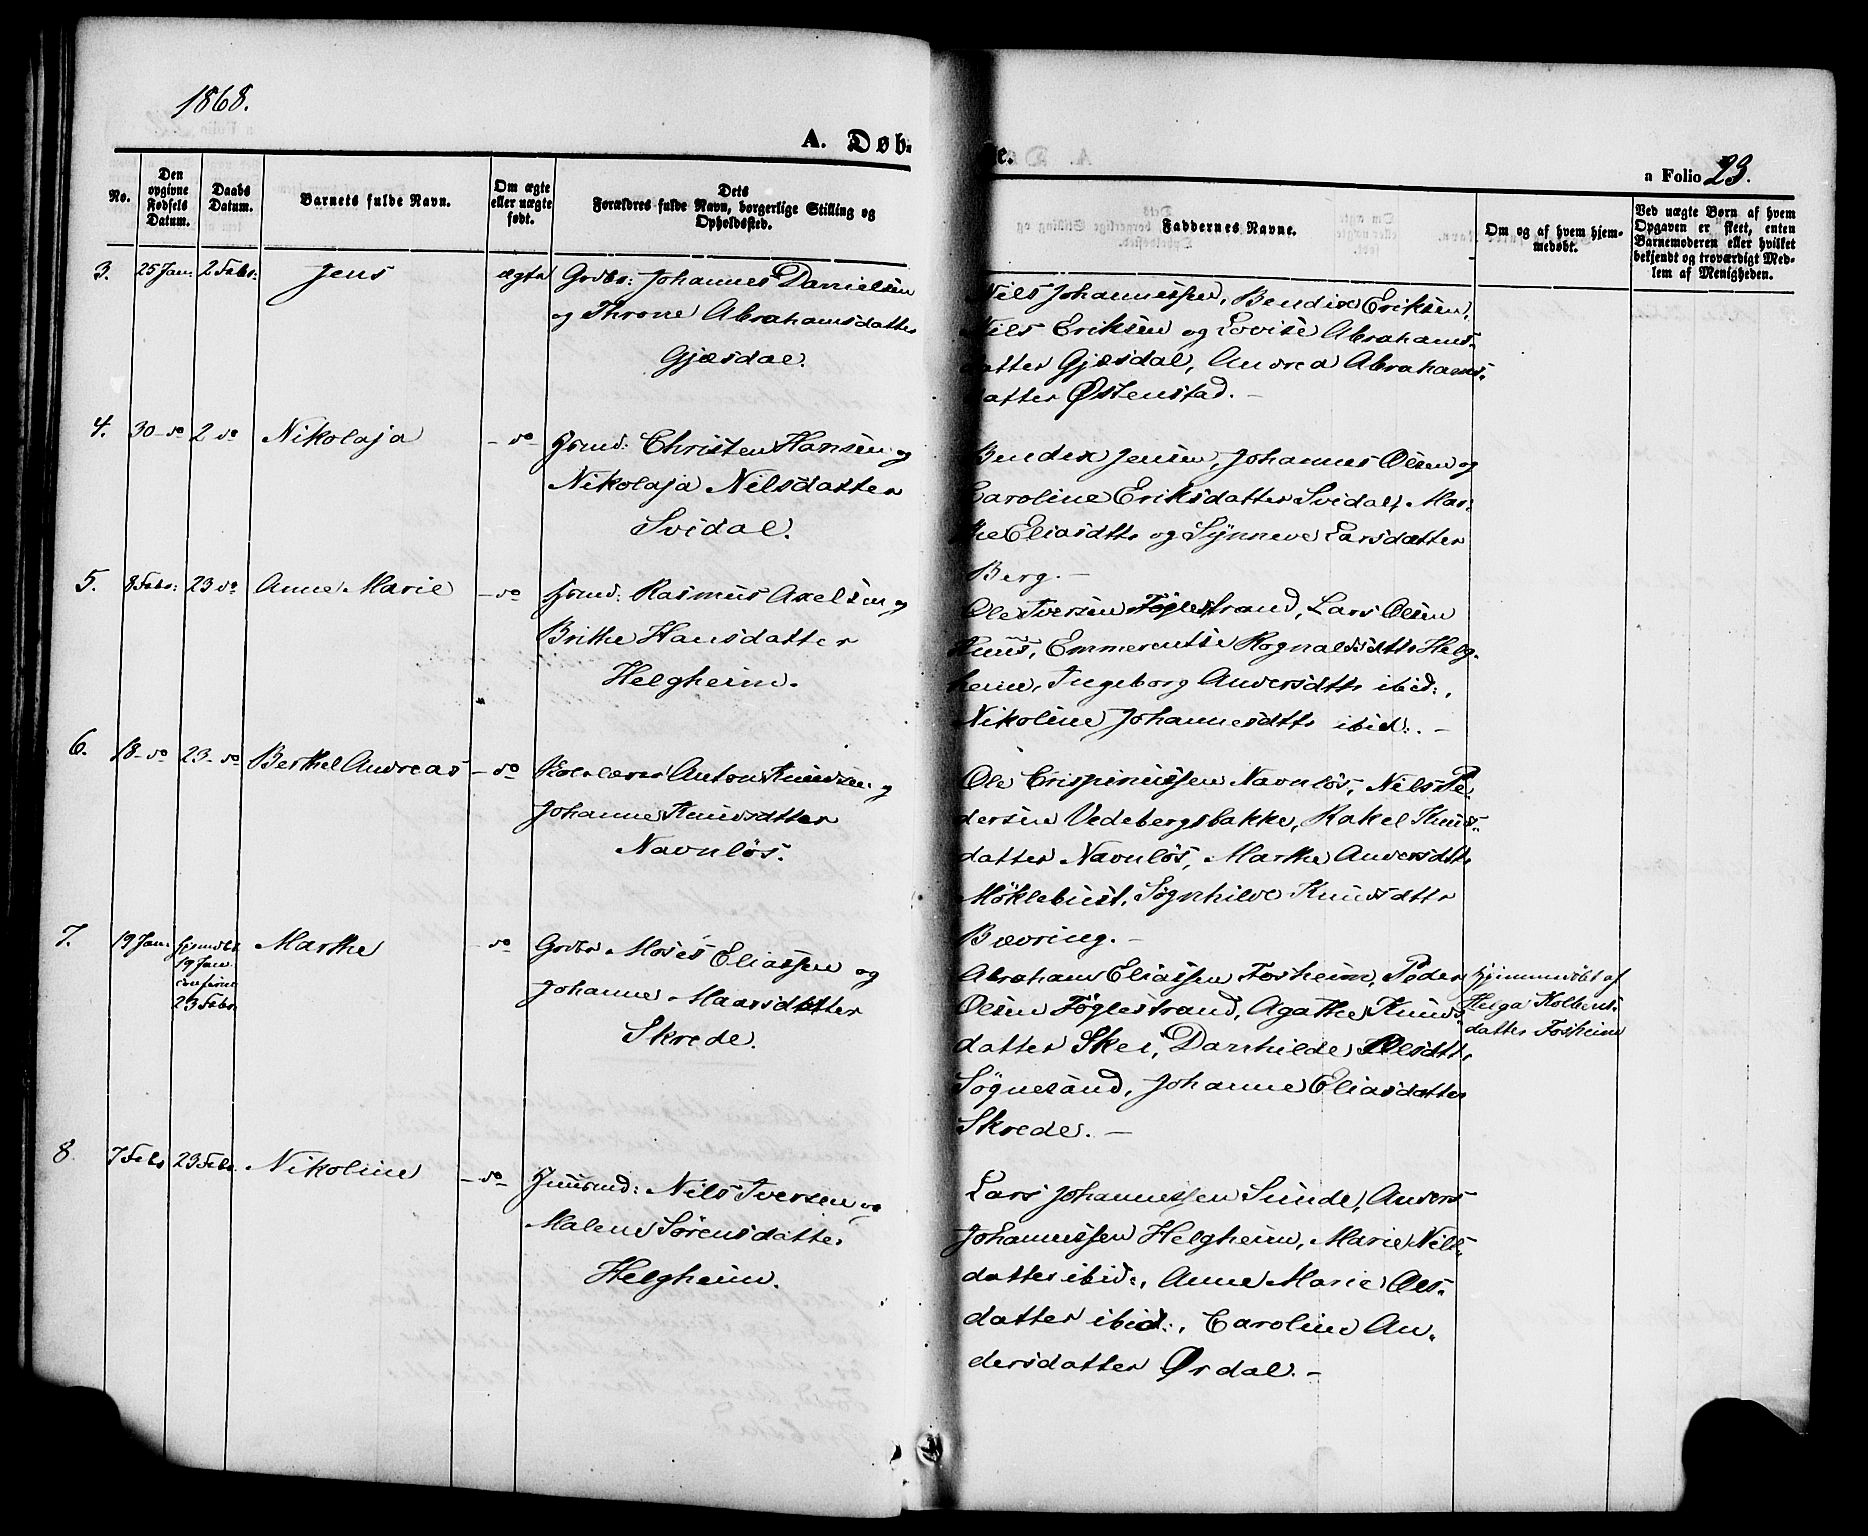 1868.
A. Døb-
te.
a Folio 23.
No.
Den opgivne Fødsels Datum.
Daabs Datum.
Barnets fulde Navn.
Om ægte eller uægte født.
Dets Forældres fulde Navn, borgerlige Stilling og Opholdssted.
Faddernes Navne.
Om og af hvem hjemmedøbt.
Ved uægte Børn af hvem Opgaven er skeet, enten Barnemoderen eller hvilket bekjendt og troværdigt Medlem af Menigheden.
3. 25 Jan: 2 Febr: Jens ægte Grdbr: Johannes Danielsen
og Throne Abrahamsdatter
Gjesdal.
Nils Johannessen, Bendix Eriksen,
Nils Eriksen og Lovise Abrahams-
datter Gjesdal, Andrea Abrahams-
datter Østenstad. -
4. 30 - do 2 do Nikolaja - do Christen Hansen og
Nikolaja Nilsdatter
Svidal.
Bendix Jensen, Johannes Olsen og
Caroline Eriksdatter Svidal, Mar-
the Eliasdtr og Synneve Larsdatter
Berg. -
5. 8 Febr: 23 do Anne Marie - do Rasmus Axelsen og
Brithe Hansdatter
Helgheim.
Ole Iversen Føglestrand, Lars Olsen
Huus, Emmerentse Rognaldsdtr Helg-
heim, Ingeborg Andersdtr ibid:,
Nikoline Johannesdtr ibid:. -
6. 18 - do 23 - do Berthel Andreas - do Anton Knudsen og
Johanne Knudsdatter
Navnløs.
Ole Crispinussen Navnløs, Nils Pe-
dersen Vedebergsbakke, Rakel Knuds-
datter Navnløs, Marthe Andersdtr
Møklebust, Søgnhilde Knudsdatter
Bævring. -
7. 19 Jan: hjemdbt. 19 Jan. confirm. 23 Febr. Marthe - do Grdbr Moses Eliassen og
Johanne Madsdatter
Skrede.
Abraham Eliassen Fosheim, Peder
Olsen Føglestrand, Agathe Knuds-
datter Skei, Danhilde Olsdtr
Søgnesand, Johanne Eliasdatter
Skrede. -
hjemmedøbt af
Helga Kolbens-
datter Fosheim
8. 7 Febr 23 Febr. Nikoline - do Nils Iversen og
Malene Sørensdatter
Helgheim.
Lars Johannessen Sunde, Anders
Johannessen Helgheim, Marie Nils-
datter ibid:, Anne Marie Ols-
datter ibid:, Caroline An-
dersdatter Ørdal. -